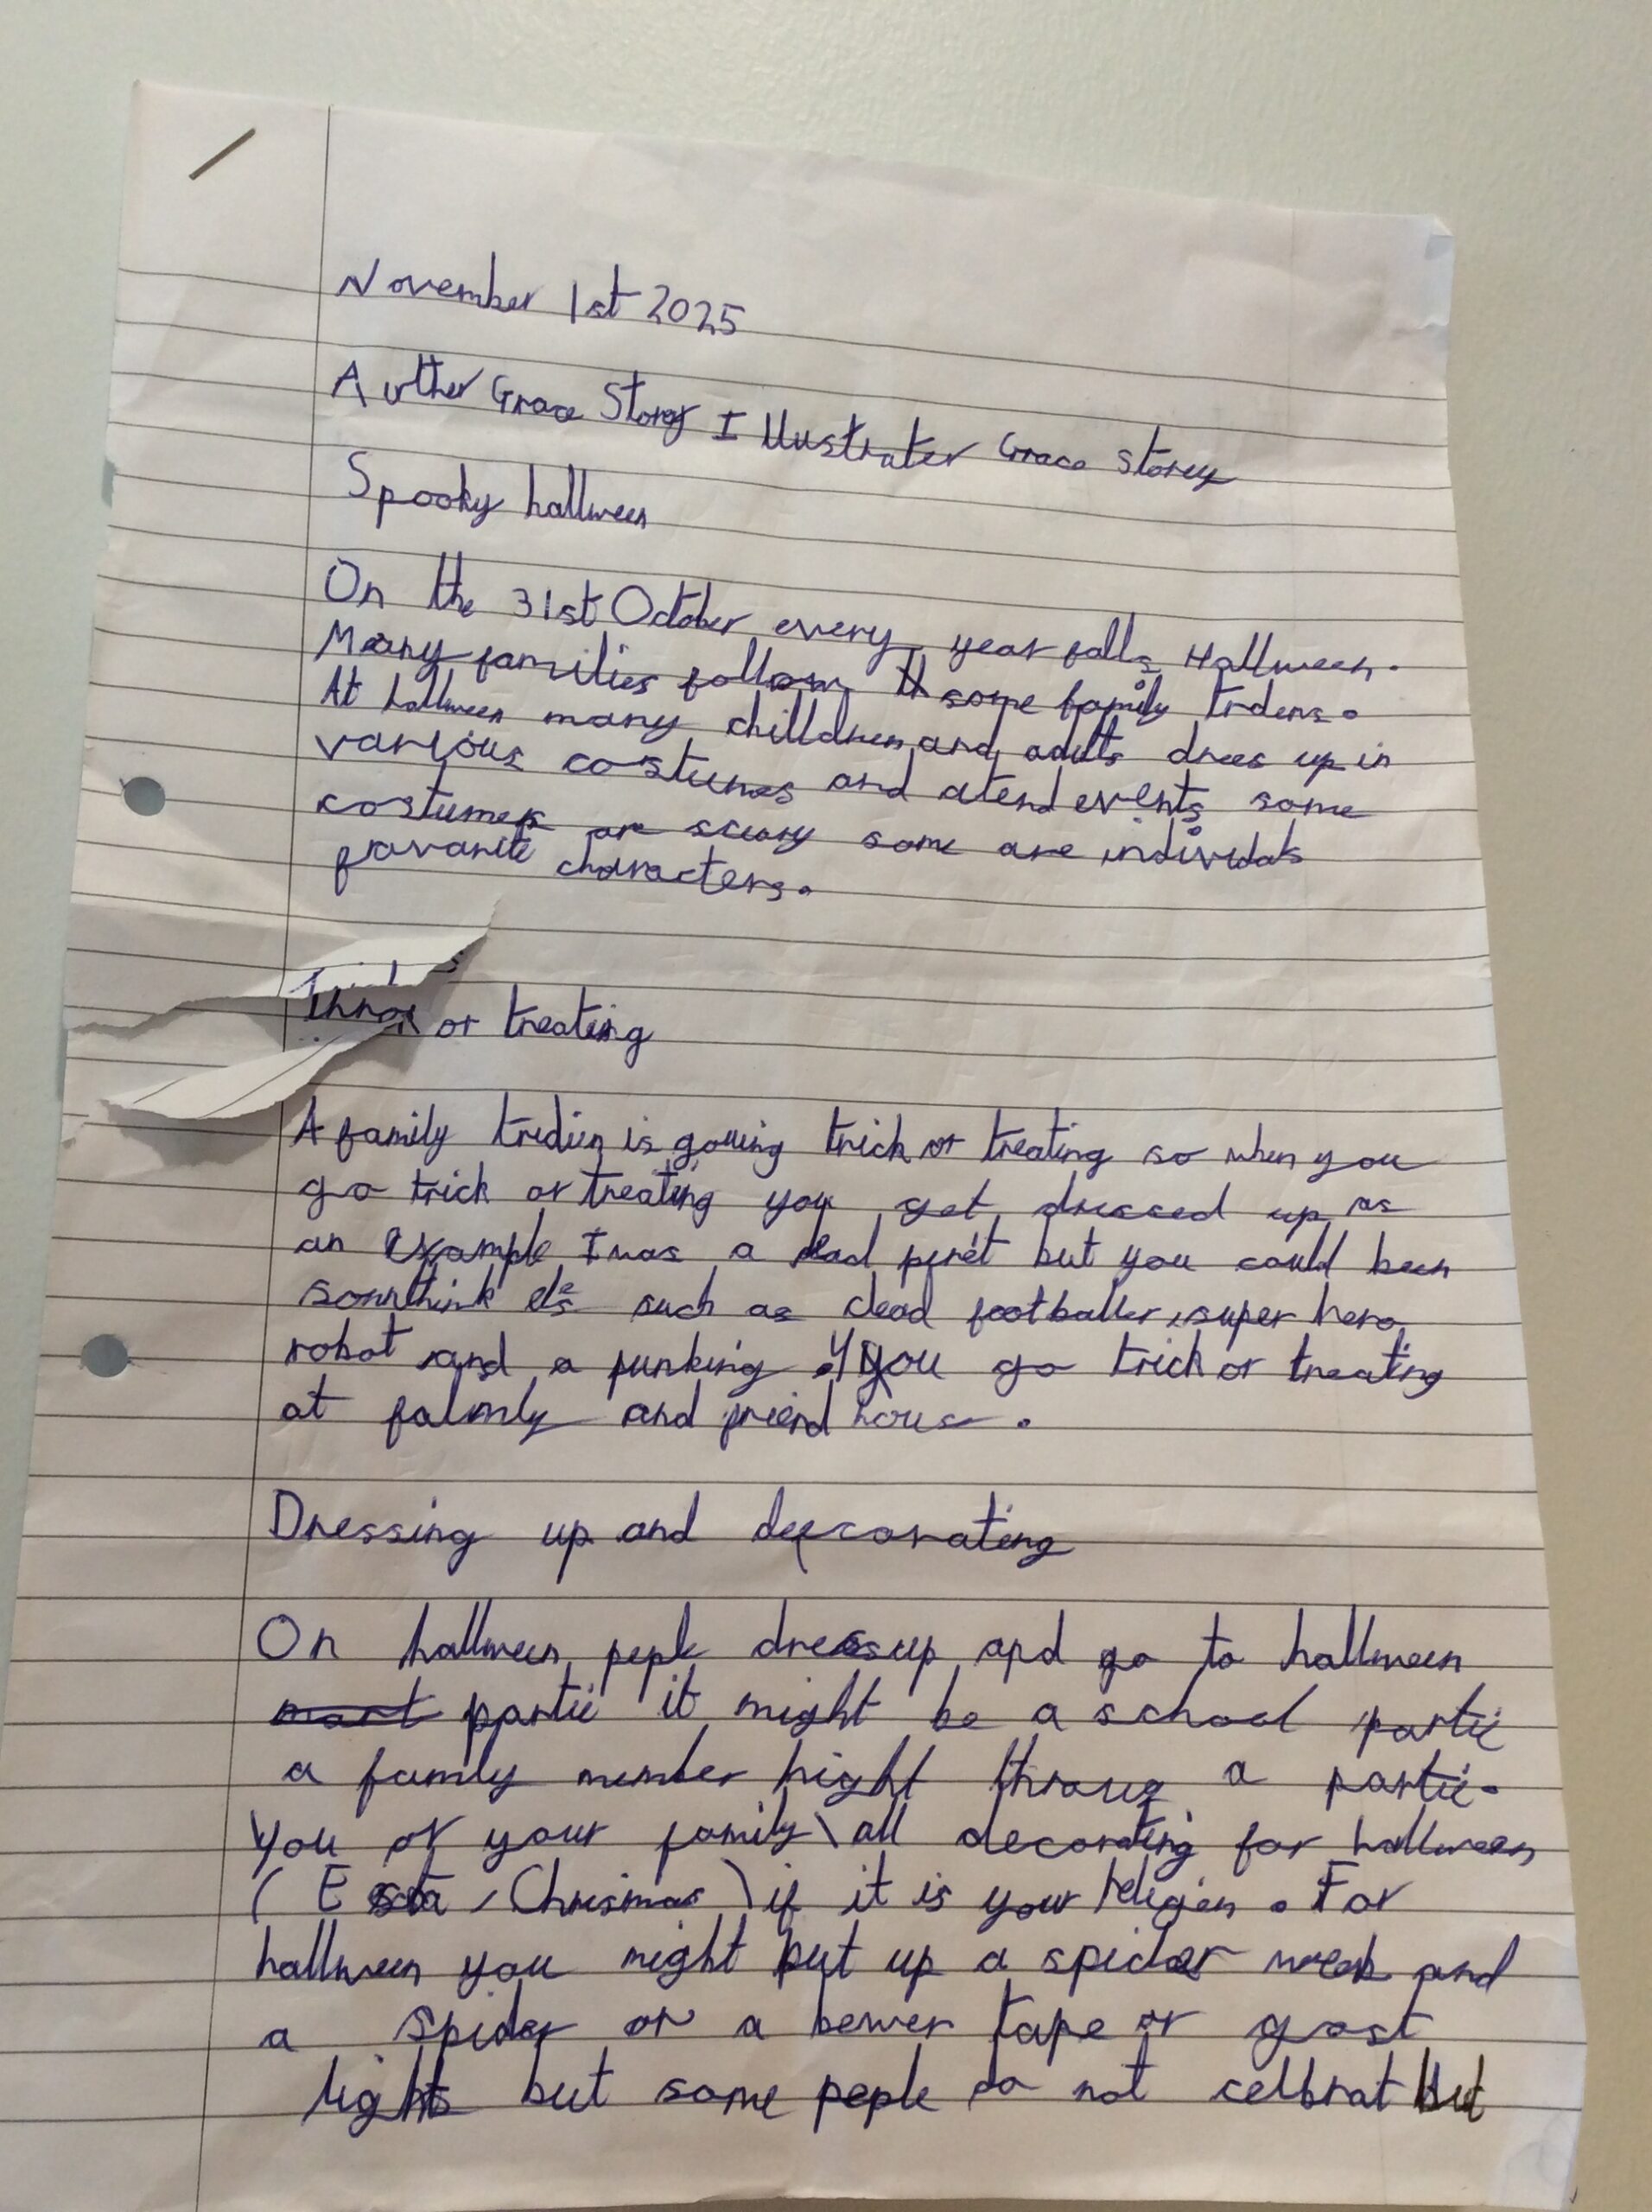 November 1st 2025
Auther Grace Storey Illustrater Grace Storey
Spooky hallween
On the 31st October every year falls Hallween.
Many families follow some family trdens.
At hallween many chilldren and adults dress up in
various costumes and atend events some
costumes are scary some are individals
favarite characters.
or treating
A family tridien is gouing trick or treating so when you
go trick or treating you get dressed up as
an example I was a dead piret but you could been
somthink els such as dead footballer, super hero,
robot and a punking . you go trick or treating
at falmly and friend hous .
Dressing up and decorating
On hallween peple dress up and go to hallween
partie it might be a school partie
a family member might throug a partie.
You or your family all decorating for hallween
( Esta , Chrismas ) if it is your religen . For
hallween you might put up a spider web and
a spider or a bewer tape or gost
lights but some peple do not celbrat but